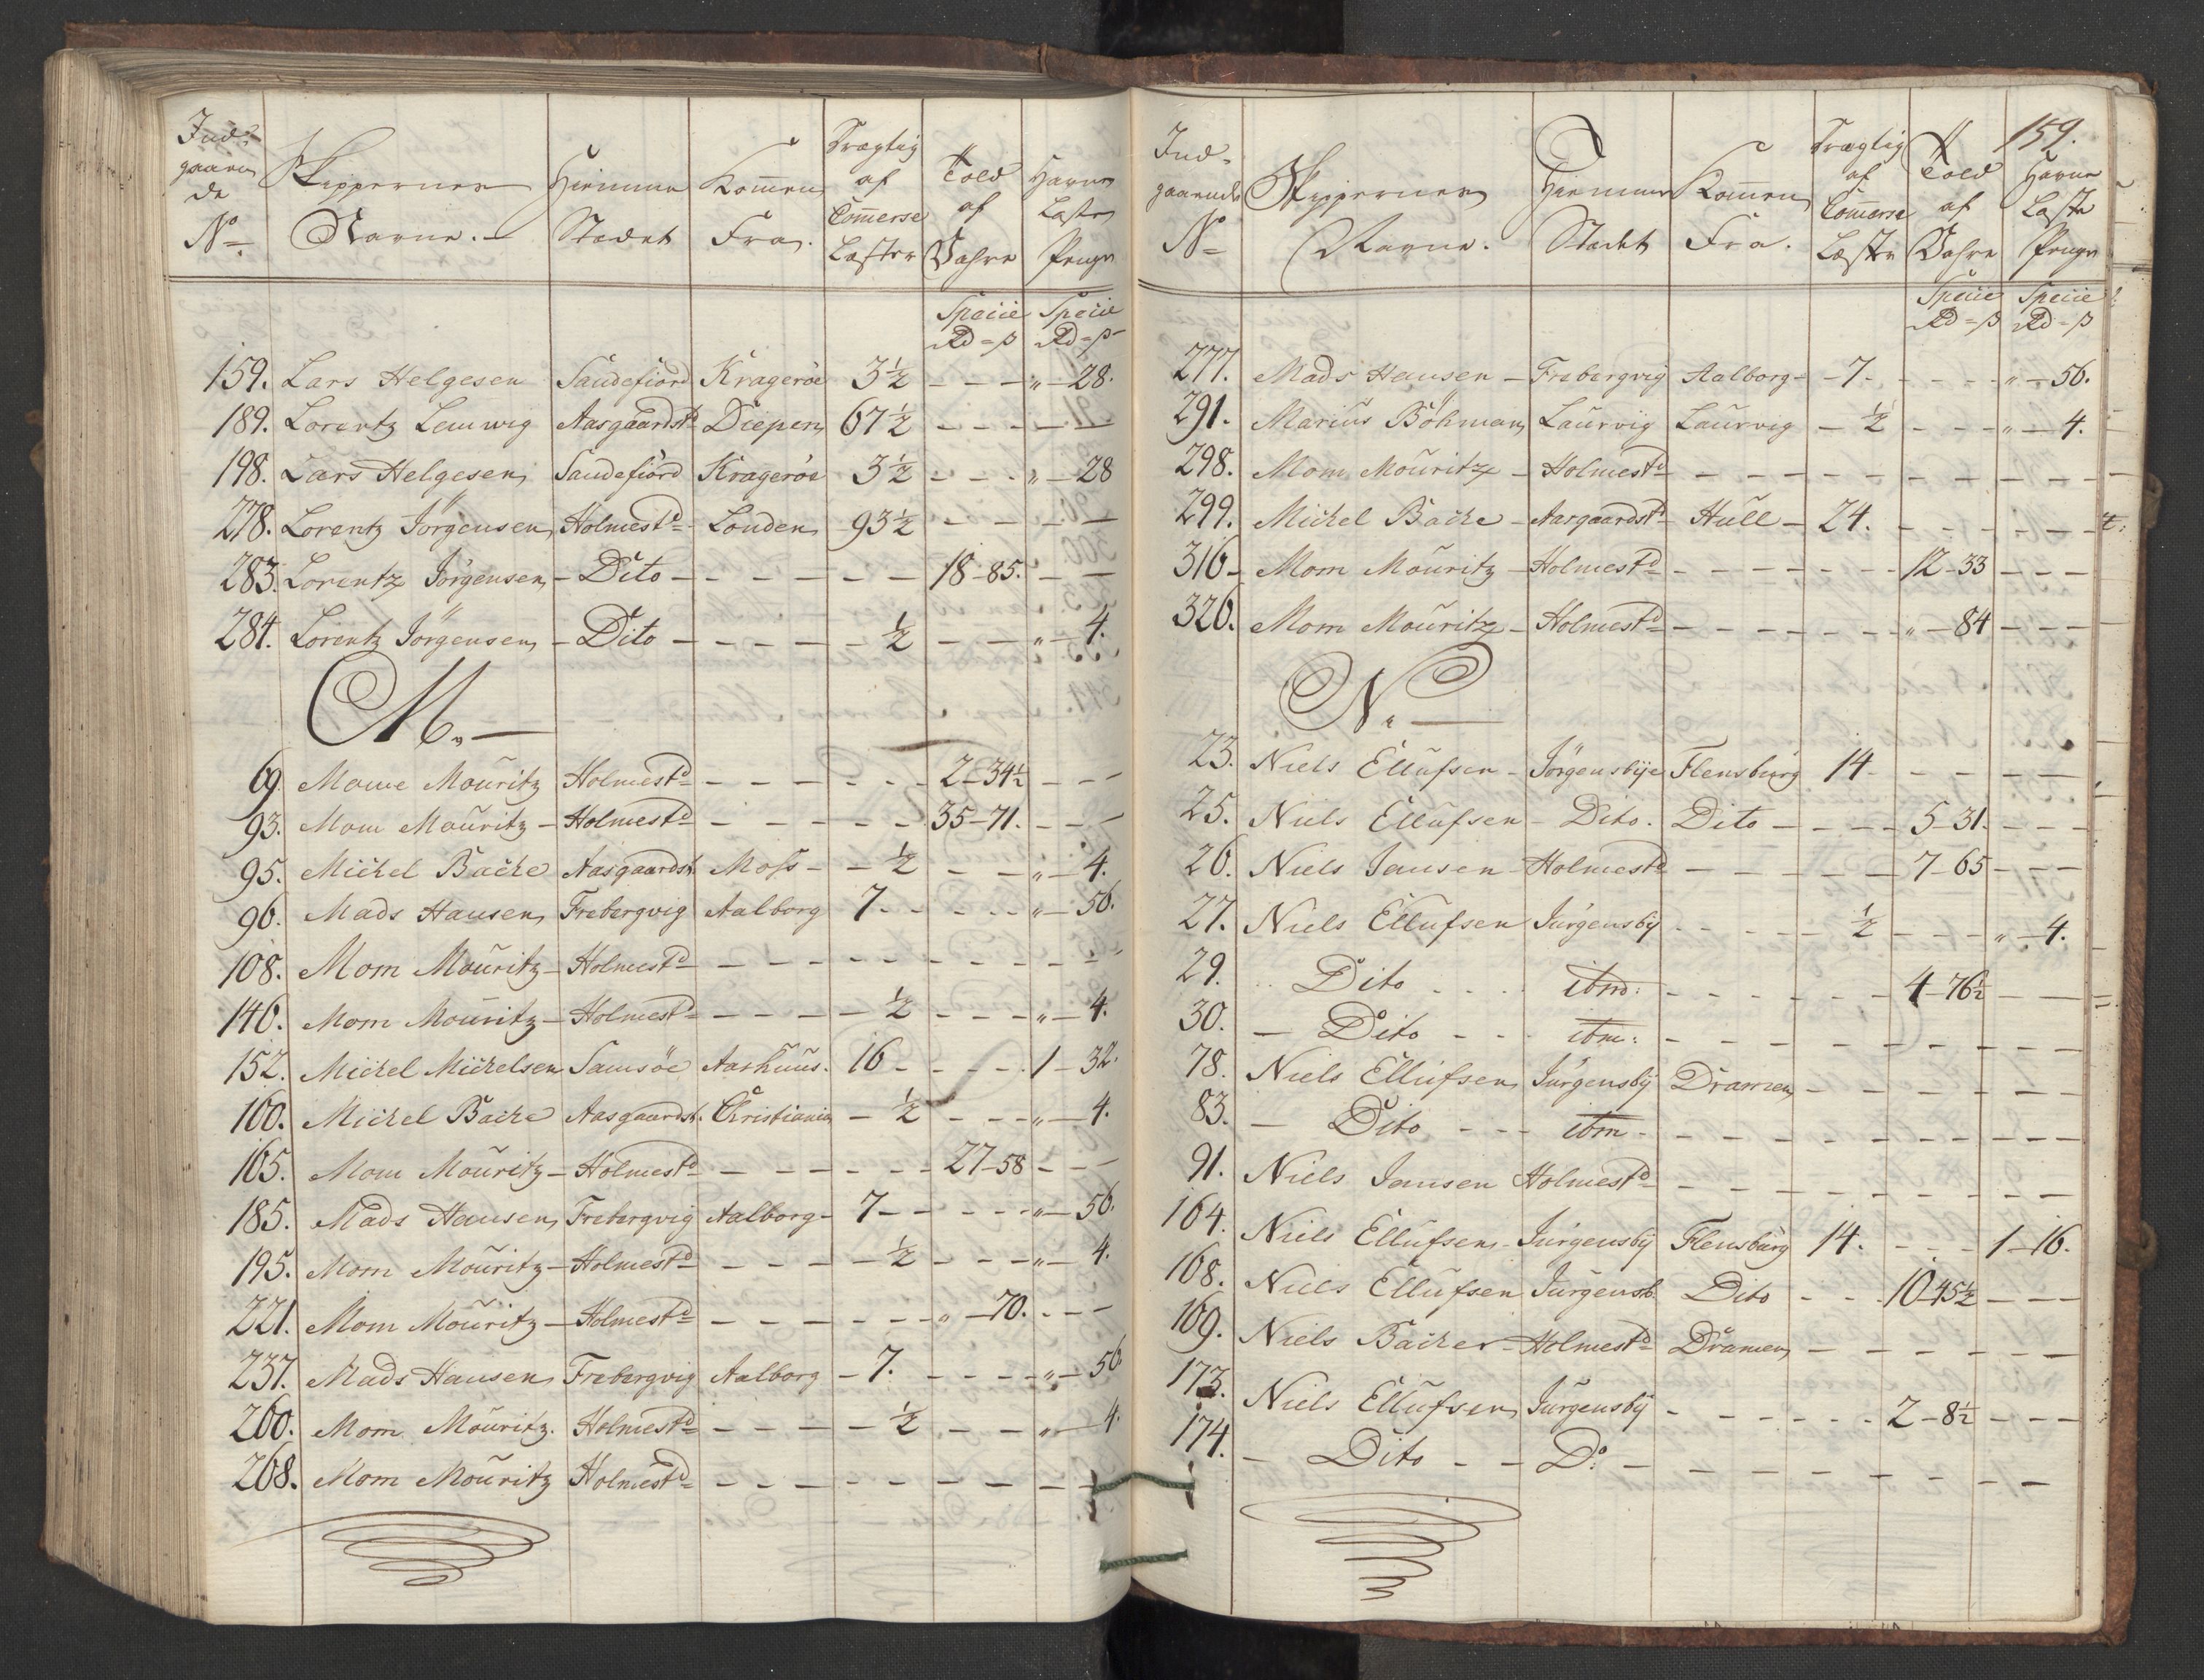 Ind-
gaaren
de
No
Skippernes
Navne.
Hiemme
Stædet
Komen
Fra.
Drægtig
af
Comerse
Læster
Told
af
Vahre
Havne
Læste
Penge
Specie
Rd - ß
Specie
Rd - ß
159. Lars Helgesen Sandefiord Kragerøe 3½ - - - " - 28.
189. Lorentz Lemwig Aasgaardstd Diepen 67½ - - - - -
198. Lars Helgesen Sandefiord Kragerøe 3½ - - - " - 28
278. Lorentz Jörgensen Holmestd - Londen 93½ - - - - -
283. Lorentz Jörgensen - Dito - - - - - - 18 - 85. - -
284. Lorentz Jörgensen - Dito - - - - - ½ - - " - 4.
M. -
69. Mowe Mouritz Holmestd - - - - - - 2 - 34½ - - -
93. Mom Mouritz - Holmestd - - - - - - 35 - 71. - - -
95. Michel Backe Aasgaardst. Moss - - ½ - - " - 4.
96. Mads Hansen Frebergvig Aalborg 7 - - - - - " - 56.
108. Mom Mouritz - Holmestd - - - - - - - - - -
146. Mom Mouritz - Holmestd - - - - ½ - - - " - 4.
152. Michel Michelsen Samsöe Aarhuus. 16 - - - - 1 - 32.
160. Michel Backe Aasgaardst. Christiania - ½ - - - " - 4.
165. Mom Mouritz - Holmestd - - - - - - 27 - 58 - - -
185. Mads Hansen Frebergvig Aalborg - 7 - - - - - " - 56.
195. Mom Mouritz - Holmestd - - - - ½ - - - " - 4.
221. Mom Mouritz - Holmestd - - - - - - " - 70. - - -
237. Mads Hansen Frebergvig Aalborg - 7. - - - - " - 56
260. Mom Mouritz. Holmestd - - - - ½ - - " - 4.
268. Mom Mouritz Holmestd - - - - - - - - -
159.
Ind-
gaaende
No
Skippernes
Navne.
Hiemme
Stædet
Komen
Fra.
Drægtig
af
Comerse
Læste
Told
af
Vahre
Havne
Læste
Penge
Specie
Rd - ß
Specie
Rd - ß
277. Mads Hansen - Frebergvig Aalborg - - 7 - - - - - " - 56.
291. Marius Böhman Laurvig Laurvig - ½ - - - " - 4.
298. Mom Mouritz - Holmestd - - - - - - - - - -
299. Michel Backe - Aasgaardstd - Hull - 24. - - - - - -
316 - Mom Mouritz - Holmestd - - - - - - 12 - 33 - - -
326. Mom Mouritz - Holmestd - - - - - - " - 84 - - -
N. -
23. Niels Ellufsen - Jörgensbye Flensburg 14 - - - - - -
25. Niels Ellufsen - Dito. Dito - - - - 5 - 31. - - -
26. Niels Jansen - Holmestd - - - - - 7 - 65 - - -
27. Niels Ellufsen Jürgensby - - - - ½ - - - " - 4.
29. Dito - - - ibmd: - - - - - - 4 - 76½ - -
30. - Dito - - - ibm: - - - - - - - - -
78. Niels Ellufsen Jürgensby Dramen - - - - - - -
83. - Dito - - - ibm - - - - - - - - - -
91. Niels Jansen Holmestd - - - - - - - - -
164. Niels Ellufsen - Jürgensby Flensburg 14. - - - 1 - 16.
168. Niels Ellufsen Jürgensb. Dito - - - 10 - 45½ - - -
169. Niels Backer - Holmestd Dramen - - - - - - -
173. Niels Ellufsen Jürgensby - - - - - - 2 - 8½ - - -
174. - Dito - - Do - - - - - - - - -